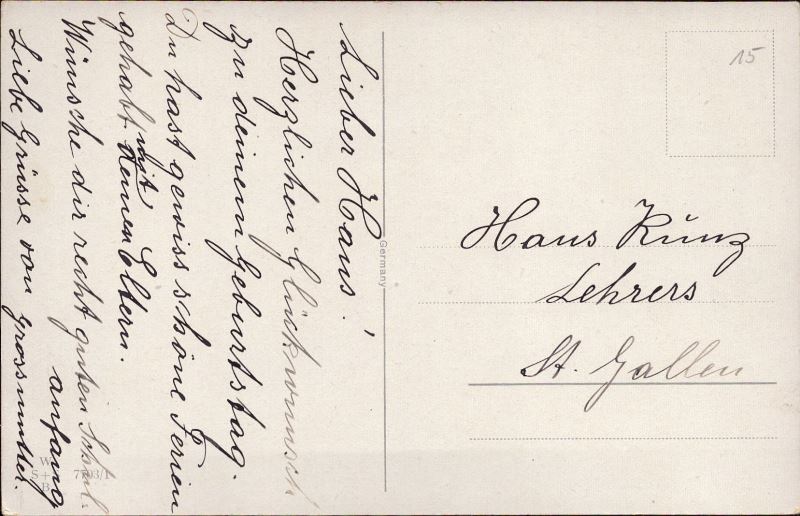 Lieber Hans!
Herzlichen Glückwunsch
zu deinem Geburtstag.
Du hast gewiss schöne Ferien
gehabt mit deinen Eltern.
Wünsche dir recht guten Schul-
anfang
Liebe Grüsse von Grossmutter.
Germany
15
Hans Kunz
Lehrers
St. Gallen
W
S+
B
7703/1